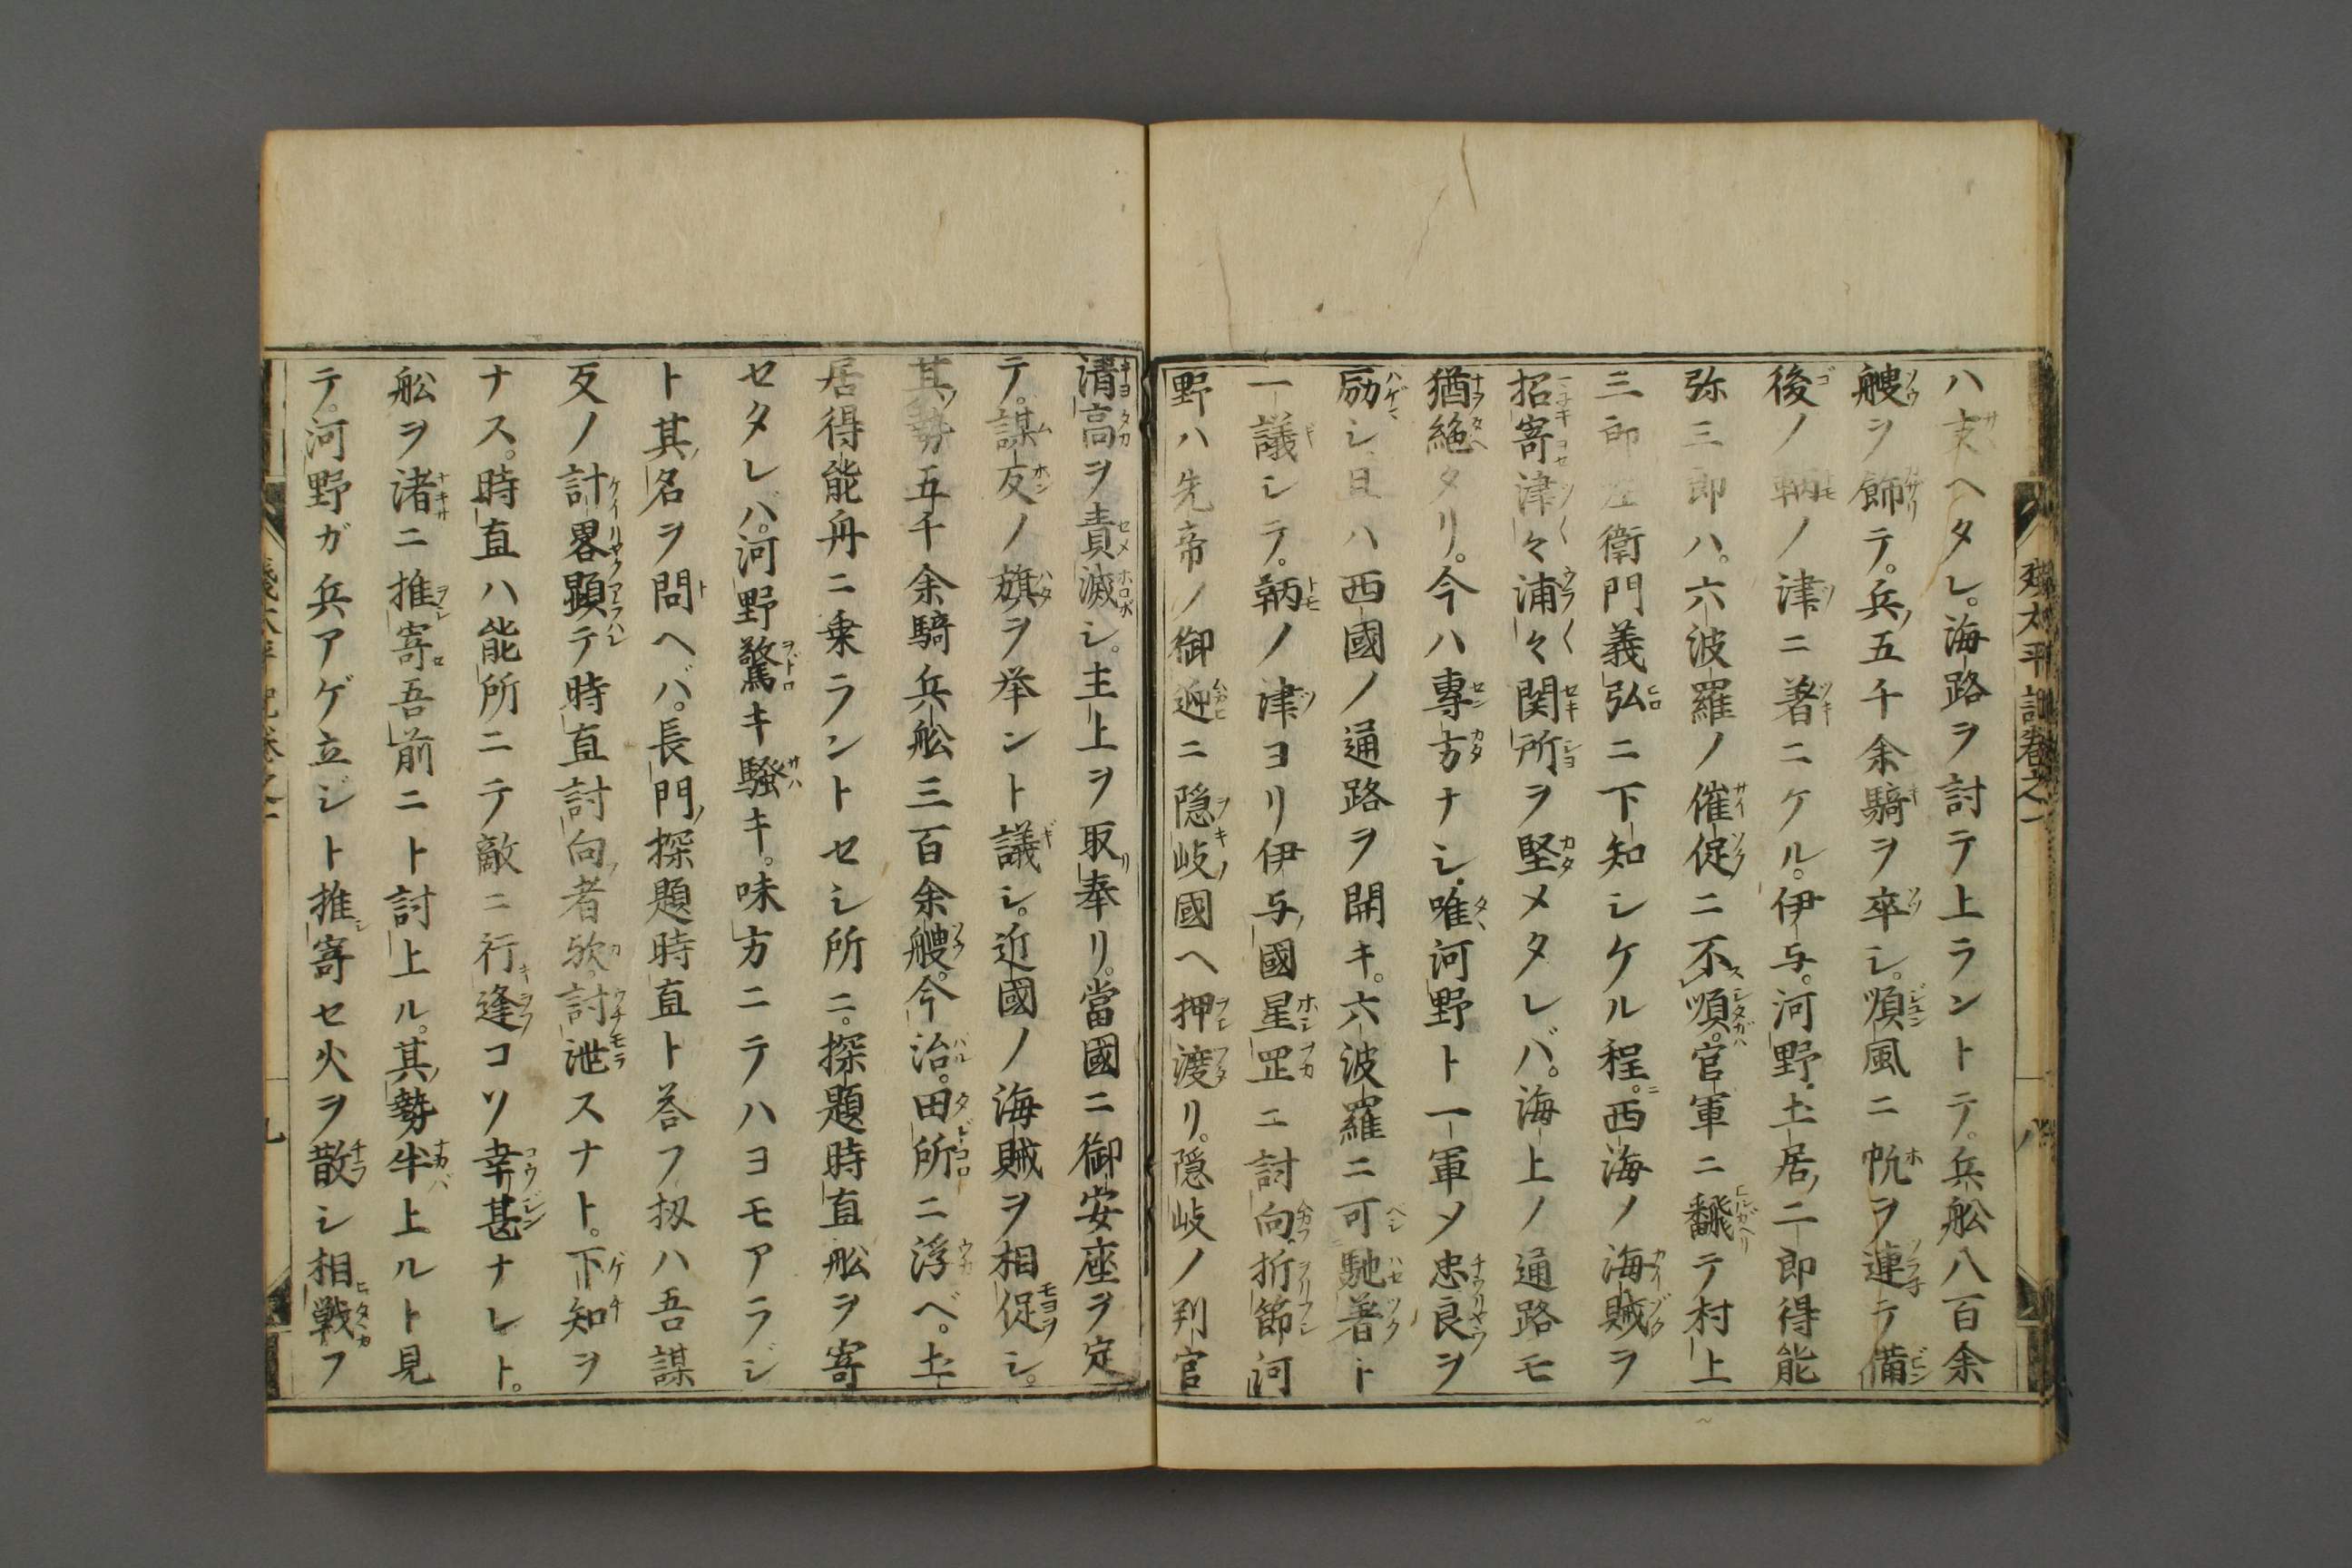 ハ支ヘタレ。海路ヲ討テ上ラントテ。兵舩八百余
艘ヲ飾テ。兵五千余騎ヲ卒シ。順風ニ帆ヲ連テ備
後ノ鞆ノ津ニ著ニケル。伊与。河野。土居二郎得能
弥三郎ハ。六波羅ノ催促ニ不順。官軍ニ飜テ村上
三郎左衛門義弘ニ下知シケル程ニ。西海ノ海賊ヲ
招寄津々浦々関所ヲ堅メタレバ。海上ノ通路モ
猶絶タリ。今ハ專方ナシ。唯河野ト一軍メ忠良ヲ
励シ。且ハ西國ノ通路ヲ開キ。六波羅ニ可馳著ト
一議シテ。鞆ノ津ヨリ伊与國星罡ニ討向。折節河
野ハ先帝ノ御迎ニ隠岐國ヘ押渡リ。隠岐ノ判官
清高ヲ責滅シ。主上ヲ取奉リ。當國ニ御安座ヲ定
テ。謀反ノ旗ヲ举ント議シ。近國ノ海賊ヲ相促シ。
其勢五千余騎兵舩三百余艘。今治。田所ニ浮ベ。土
居得能舟ニ乗ラントセシ所ニ。探題時直舩ヲ寄
セタレバ。河野驚キ騒キ。味方ニテハヨモアラジ
ト其名ヲ問ヘバ。長門探題時直ト荅フ扨ハ吾謀
反ノ計畧顕テ時直討向者欤。討泄スナト。下知ヲ
ナス。時直ハ能所ニテ敵ニ行逢コソ幸甚ナレト。
舩ヲ渚ニ推寄吾前ニト討上ル。其勢半上ルト見
テ。河野ガ兵アゲ立ジト推寄セ火ヲ散シ相戦フ